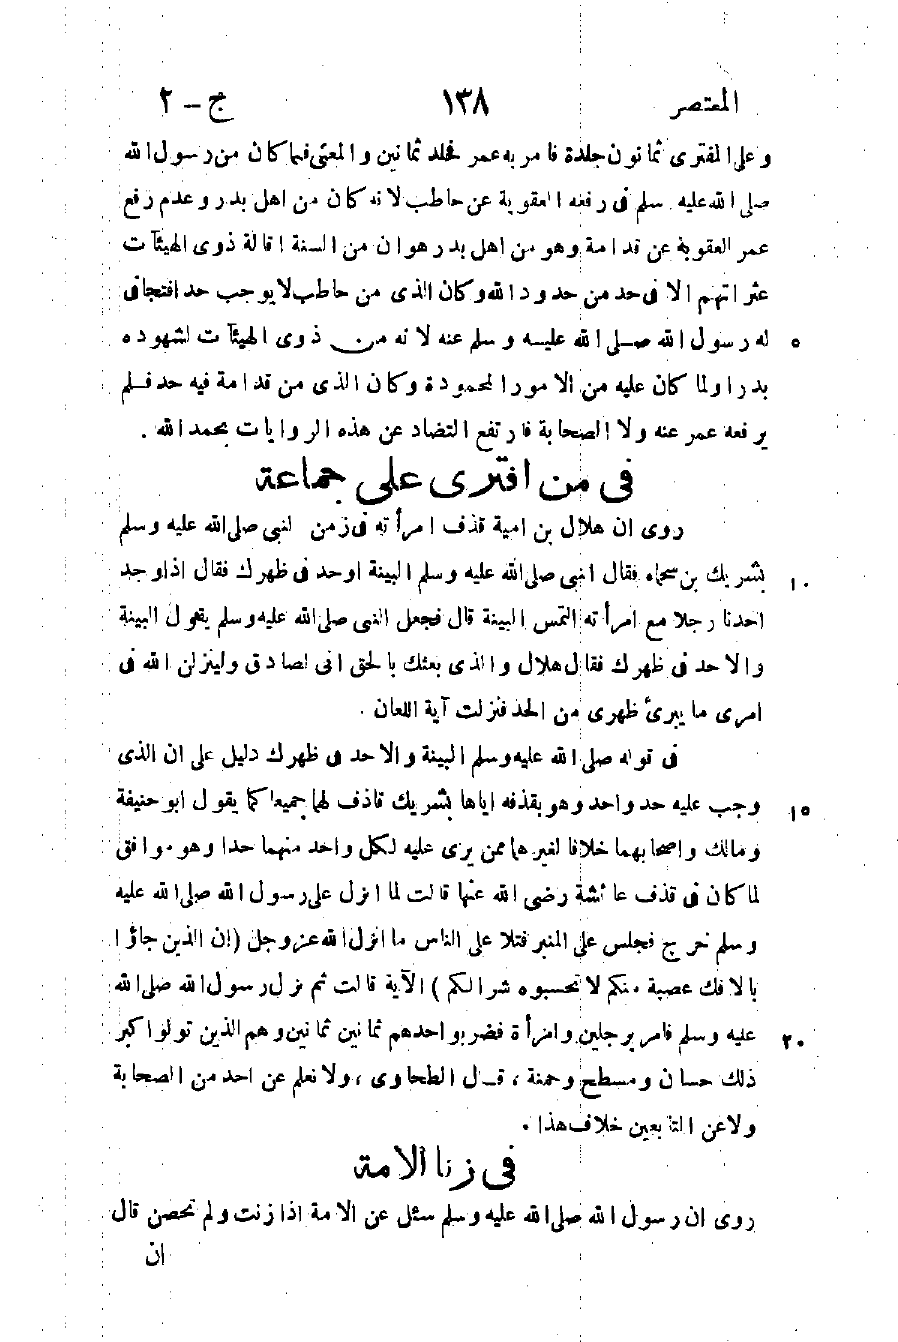 المعتصر ١٣٨ ج – ٢
وعلى المفترى ثمانون جلدة فامر به عمر فجلد ثمانين والمعنى فيما كان من رسول الله
صلى الله عليه وسلم فى رفعه العقوبة عن حاطب لانه كان من اهل بدر وعدم رفع
عمر العقوبة عن قدامة وهو من اهل بدر هو ان من السنة اقالة ذوى الهيئآت
عثراتهم الا فى حد من حدود الله وكان الذى من حاطب لا يوجب حدا فتجافى
له رسول الله صلى الله عليه وسلم عنه لانه من ذوى الهيئآت لشهوده ٥
بدرا ولما كان عليه من الامور المحمودة وكان الذى من قدامة فيه حد فلم
يرفعه عمر عنه ولا الصحابة فارتفع التضاد عن هذه الروايات بحمد الله .
فى من افترى على جماعة
روى ان هلال بن امية قذف امرأته فى زمن النبى صلى الله عليه وسلم
بشريك بن سحماء فقال النبى صلى الله عليه وسلم البينة او حد فى ظهرك فقال اذا وجد ١٠
احدنا رجلا مع امرأته التمس البينة قال فجعل النبى صلى الله عليه وسلم يقول البينة
والا حد فى ظهرك فقال هلال والذى بعثك بالحق انى لصادق ولينزلن الله فى
امرى ما يبرئ ظهرى من الحد فنزلت آية اللعان .
فى قوله صلى الله عليه وسلم البينة والا حد فى ظهرك دليل على ان الذى
وجب عليه حد واحد وهو بقذفه اياها بشريك قاذف لهما جميعا كما يقول ابو حنيفة ١٥
ومالك واصحابهما خلافا لغيرهما ممن يرى عليه لكل واحد منهما حدا وهو موافق
لما كان فى قذف عائشة رضى الله عنها قالت لما انزل على رسول الله صلى الله عليه
وسلم خرج فجلس على المنبر فتلا على الناس ما انزل الله عز وجل (ان الذين جاؤا
بالافك عصبة منكم لا تحسبوه شرا لكم) الآية قالت ثم نزل رسول الله صلى الله
عليه وسلم فامر برجلين وامرأة فضربوا حدهم ثمانين ثمانين وهم الذين تولوا كبر ٢٠
ذلك حسان ومسطح وحمنة ، قال الطحاوى ، ولا نعلم عن احد من الصحابة
ولا عن التابعين خلاف هذا .
فى زنا الامة
روى ان رسول الله صلى الله عليه وسلم سئل عن الامة اذا زنت ولم تحصن قال
ان